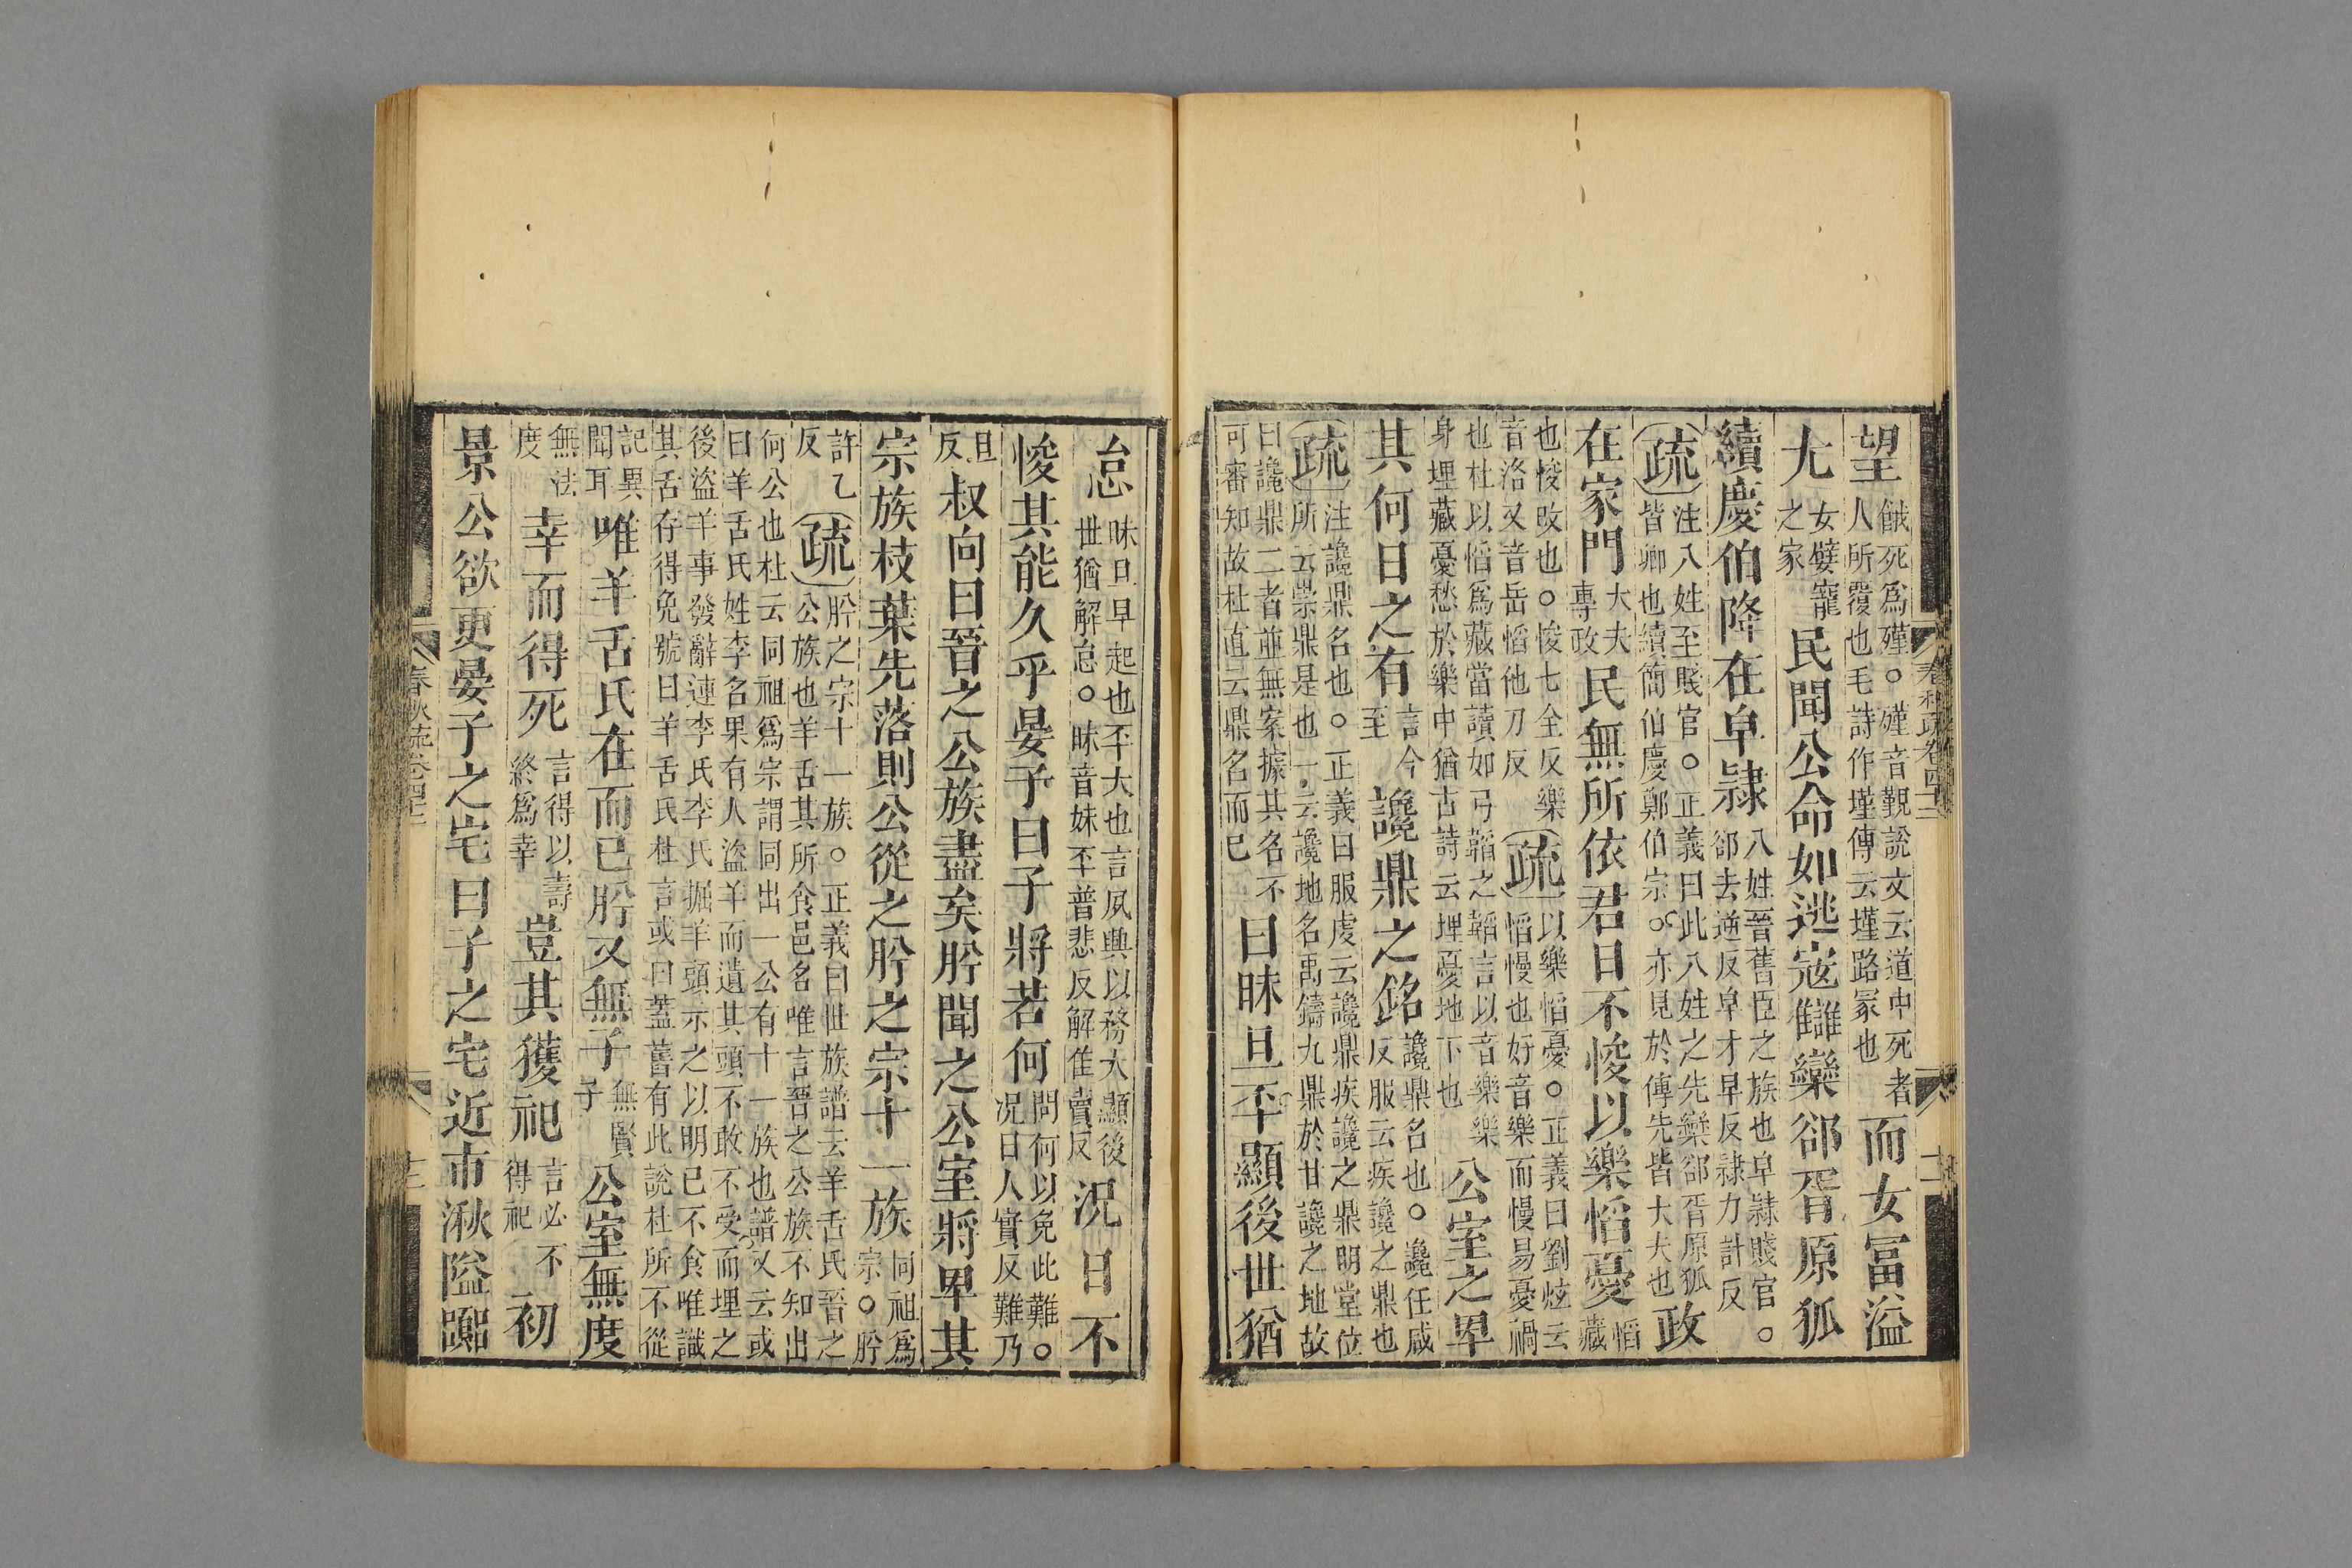 望餓死爲殣○殣音覲說文云道中死者
人所覆也毛詩作墐傳云墐路冢也而女富溢
尤女嬖寵
之家民聞公命如逃寇讎欒郤胥原狐
續慶伯降在皁隷八姓晉舊臣之族也皁隷賤官○
郤去逆反皁才早反隷力計反
疏注八姓至賤官○正義曰此八姓之先欒郤胥原狐
皆卿也續簡伯慶鄭伯宗○亦見於傳先皆大夫也政
在家門大夫
專政民無所依君日不悛以樂慆憂慆
藏
也悛改也○悛七全反樂
音洛又音岳慆他刀反疏以樂慆憂○正義曰劉炫云
慆慢也好音樂而慢易憂禍
也杜以慆爲藏當讀如弓韜之韜言以音樂樂
身埋藏憂愁於樂中猶古詩云埋憂地下也公室之卑
其何日之有言今
至讒鼎之銘讒鼎名也○讒仕咸
反服云疾讒之鼎也
疏注讒鼎名也○正義曰服虔云讒鼎疾讒之鼎明堂位
所云崇鼎是也一云讒地名禹鑄九鼎於甘讒之地故
曰讒鼎二者並無案據其名不
可審知故杜直云鼎名而已曰昧旦丕顯後世猶
春秋疏卷四十二
十二
怠昧旦早起也丕大也言夙興以務大顯後
世猶解怠○昧音妹丕普悲反解佳賣反況日不
悛其能久乎晏子曰子將若何問何以免此難○
况曰人實反難乃
旦
反叔向曰晉之公族盡矣肸聞之公室將卑其
宗族枝葉先落則公從之肸之宗十一族同祖爲
宗○肸
許乙
反疏肸之宗十一族○正義曰世族譜云羊舌氏晉之
公族也羊舌其所食邑名唯言晉之公族不知出
何公也杜云同祖爲宗謂同出一公有十一族也譜又云或
曰羊舌氏姓李名果有人盜羊而遺其頭不敢不受而埋之
後盜羊事發辭連李氏李氏掘羊頭示之以明已不食唯識
其舌存得免號曰羊舌氏杜言或曰蓋舊有此說杜所不從
記異
聞耳唯羊舌氏在而已肸又無子無賢
子公室無度
無法
度幸而得死言得以壽
終爲幸豈其獲祀言必不
得祀初
景公欲更晏子之宅曰子之宅近市湫隘囂
春秋疏卷四十二
十二